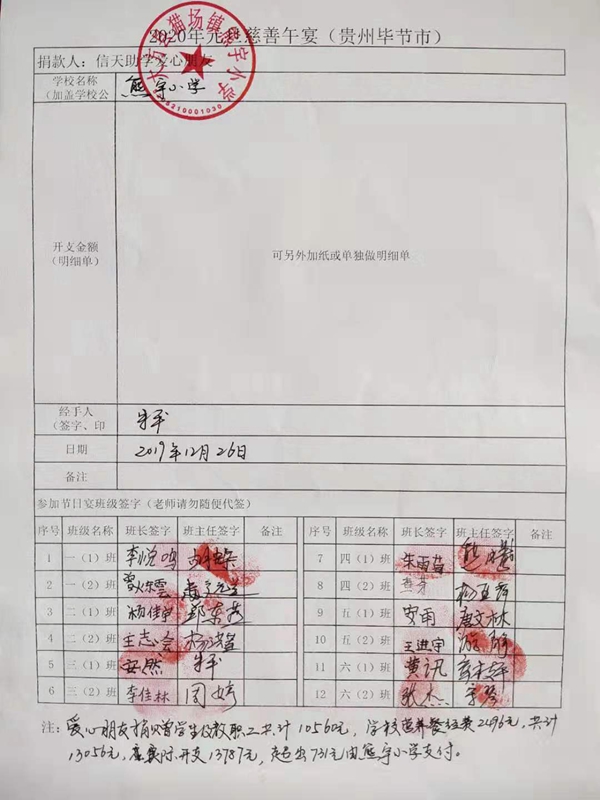 2020年元旦慈善午宴（贵州毕节市）
捐款人：信天助学爱心朋友
学校名称
（加盖学校公
熊宇小学
猫场镇熊宇小学
开支金额
（明细单）
可另外加纸或单独做明细单
经手人
（签字、印
日期
2019年12月26日
备注
参加节日宴班级签字（老师请勿随便代签）
序号 班级名称 班长签字 班主任签字 备注 序号 班级名称 班长签字 班主任签字 备注
1 一（1）班 李悦鸣 7 四（1）班 朱雨苗
2 一（2）班 8 四（2）班
3 二（1）班 杨佳 9 五（1）班 安雨 唐文林
4 二（2）班 王志会 10 五（2）班 王进宇
5 三（1）班 安然 11 六（1）班 黄讯
6 三（2）班 李佳林 周婷 12 六（2）班 张杰
注：爱心朋友捐收学生及教职工共计10560元，学校营养餐经费2496元，共计
13056元，实际开支13787元，超出731元由熊宇小学支付。